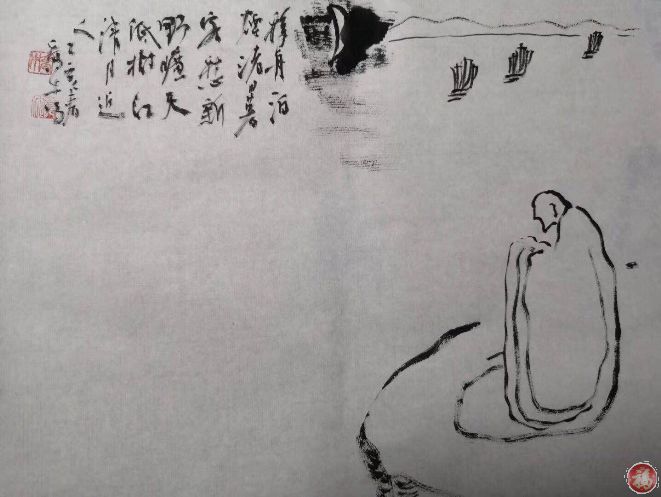 移舟泊
煙渚日暮
客愁新
野曠天
低樹江
清月近
人
福